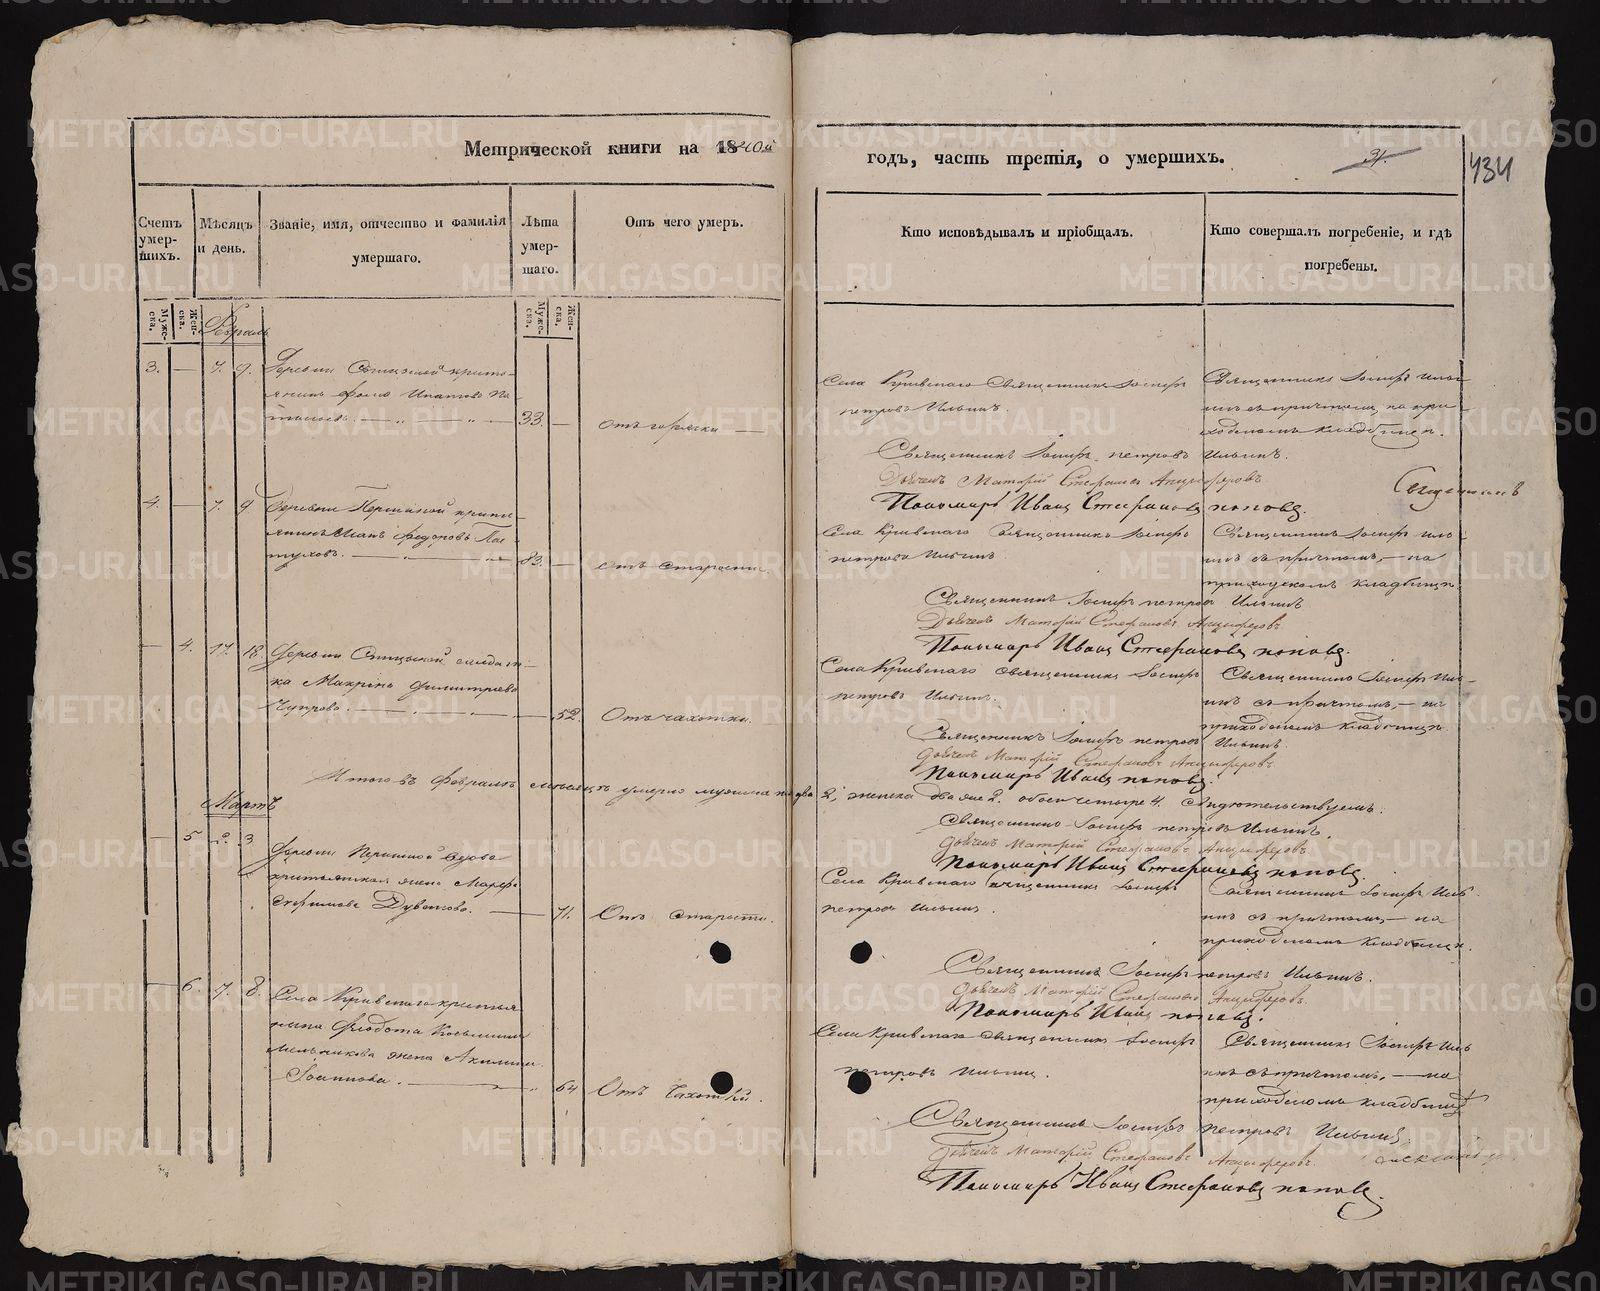 Метрической книги на 1840й
годъ, часть третія, о умершихъ.
31.
434
Счетъ умер-шихъ.
Мѣсяцъ и день.
Званіе, имя, отчество и фамилія умершаго.
Лѣта умер-шаго.
Отъ чего умеръ.
Кто исповѣдывалъ и пріобщалъ.
Кто совершалъ погребеніе, и гдѣ погребены.
Муже-ска.
Жен-ска.
Муже-ска.
Жен-ска.
Февраль
3. — 7. 9. Деревни крестья-
янинъ Фома Ипатовъ
33. — Отъ горячки —
Села Кривскаго Священникъ Іосифъ
петровъ Ильинъ.
Священникъ Іосифъ Иль-
инъ съ причтомъ, на при-
ходскомъ кладбищѣ.
Священникъ Іосифъ петровъ Ильинъ.
Дьячекъ Матѳій Стефановъ Анциферовъ
Пономарь Иванъ Стефановъ поповъ.
4. — 7. 9 Деревни Першиной крестья-
янинъ Иванъ Федоровъ Пас-
туховъ. — 83. — отъ старости.
Села Кривскаго Священникъ Іосифъ
петровъ Ильинъ
Священникъ Іосифъ Иль-
инъ съ причтомъ, — на
приходскомъ кладбищѣ.
Священникъ Іосифъ петровъ Ильинъ
Дьячекъ Матѳій Стефановъ Анциферовъ.
Пономарь Иванъ Стефановъ поповъ.
— 4. 17. 18. Деревни солдат-
ка Макрина Димитріева
Чупрова. — 52. Отъ чахотки.
Села Кривскаго священникъ Іосифъ
петровъ Ильинъ.
Священникъ Іосифъ Иль-
инъ съ причтомъ, — на
приходскомъ кладбищѣ.
Священникъ Іосифъ петровъ Ильинъ.
Дьячекъ Матѳій Стефановъ Анциферовъ
Пономарь Иванъ поповъ.
Итого въ Февралѣ мѣсяцѣ умерло мужеска два 2, женска два же 2. обоего четыре 4. свидѣтельствуемъ.
Священникъ Іосифъ петровъ Ильинъ.
Дьячекъ Матѳій Стефановъ Анциферовъ
Пономарь Иванъ Стефановъ поповъ.
Мартъ
— 5 2. 3 Деревни Першиной вдова
крестьянская жена Марѳа
71. Отъ старости.
Села Кривскаго священникъ Іосифъ
петровъ Ильинъ.
Священникъ Іосифъ Иль-
инъ съ причтомъ, — на
приходскомъ кладбищѣ.
Священникъ Іосифъ петровъ Ильинъ.
Дьячекъ Матѳій Стефановъ Анциферовъ.
Пономарь Иванъ поповъ.
— 6. 7. 8. Села Кривскаго крестья-
нина Ѳеодота Козьмина
Мельникова жена Акилина
Іоаннова. — 64 Отъ Чахотки.
Села Кривскаго священникъ Іосифъ
петровъ Ильинъ.
Священникъ Іосифъ Иль-
инъ съ причтомъ, — на
приходскомъ кладбищѣ
Священникъ Іосифъ петровъ Ильинъ
Дьячекъ Матѳій Стефановъ Анциферовъ.
Пономарь Иванъ Стефановъ поповъ.
METRIKI.GASO-URAL.RU